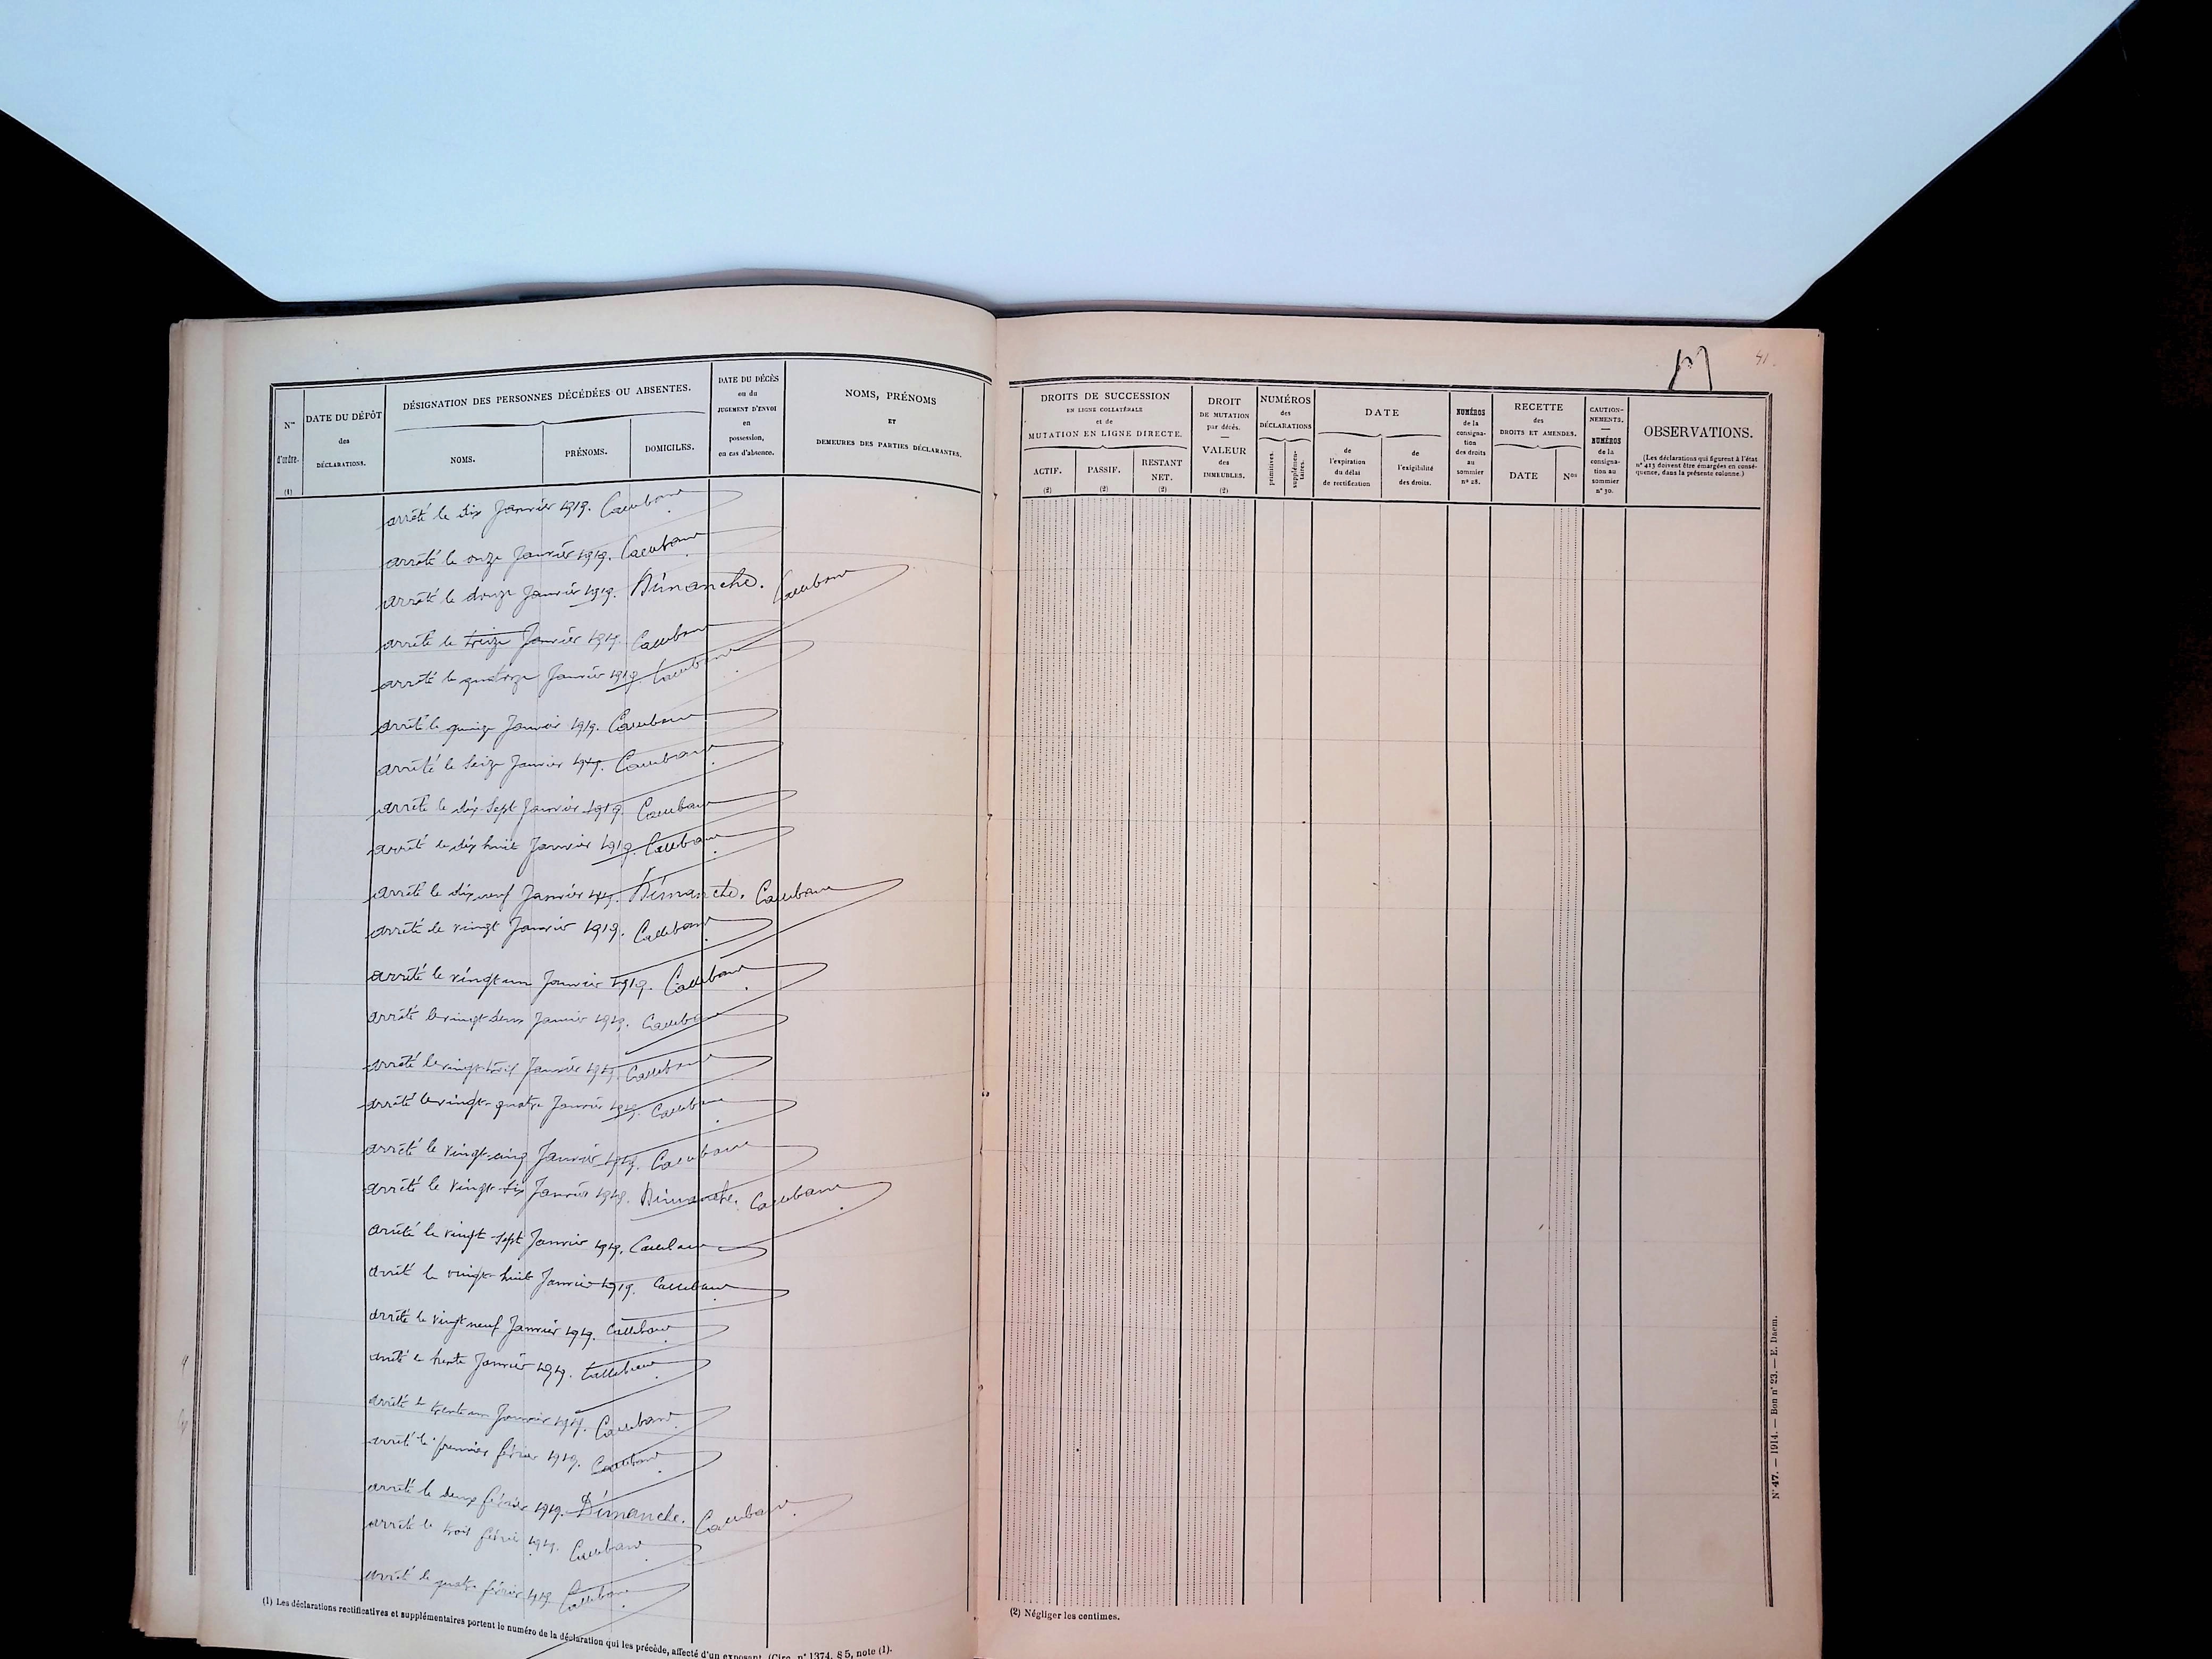 41.
Nos d'ordre. (1)
DATE DU DÉPÔT des DÉCLARATIONS.
DÉSIGNATION DES PERSONNES DÉCÉDÉES OU ABSENTES.
NOMS.
PRÉNOMS.
DOMICILES.
DATE DU DÉCÈS ou du JUGEMENT D'ENVOI en possession, en cas d'absence.
NOMS, PRÉNOMS ET DEMEURES DES PARTIES DÉCLARANTES.
arrêté le dix Janvier 1919.
arrêté le onze Janvier 1919.
arrêté le douze Janvier 1919. Dimanche.
arrêté le treize Janvier 1919.
arrêté le quatorze Janvier 1919.
arrêté le quinze Janvier 1919.
arrêté le seize Janvier 1919.
arrêté le dix sept Janvier 1919.
arrêté le dix huit Janvier 1919.
arrêté le dix neuf Janvier 1919. Dimanche.
arrêté le vingt Janvier 1919.
arrêté le vingt un Janvier 1919.
arrêté le vingt deux Janvier 1919.
arrêté le vingt trois Janvier 1919.
arrêté le vingt-quatre Janvier 1919.
arrêté le vingt-cinq Janvier 1919.
arrêté le vingt-six Janvier 1919. Dimanche.
arrêté le vingt-sept Janvier 1919.
arrêté le vingt-huit Janvier 1919.
arrêté le vingt neuf Janvier 1919. Callebaut
arrêté le trente Janvier 1919. Callebaut
arrêté le trente un Janvier 1919.
arrêté le premier février 1919.
arrêté le deux février 1919. Dimanche.
arrêté le trois février 1919.
arrêté le quatre février 1919
(1) Les déclarations rectificatives et supplémentaires portent le numéro de la déclaration qui les précède, affecté d'un exposant. (Circ. n° 1374, § 5, note (1).
DROITS DE SUCCESSION EN LIGNE COLLATÉRALE et de MUTATION EN LIGNE DIRECTE.
ACTIF. (2)
PASSIF. (2)
RESTANT NET. (2)
DROIT DE MUTATION par décès. — VALEUR des IMMEUBLES. (2)
NUMÉROS des DÉCLARATIONS
primitives.
supplémentaires.
DATE
de l'expiration du délai de rectification
de l'exigibilité des droits.
NUMÉROS de la consignation des droits au sommier n° 28.
RECETTE des DROITS ET AMENDES.
DATE
Nos
CAUTIONNEMENTS. — NUMÉROS de la consignation au sommier n° 30.
OBSERVATIONS.
(Les déclarations qui figurent à l'état n° 413 doivent être émargées en conséquence, dans la présente colonne.)
(2) Négliger les centimes.
N° 47. — 1914. — Bon n° 23. — E. Daem.